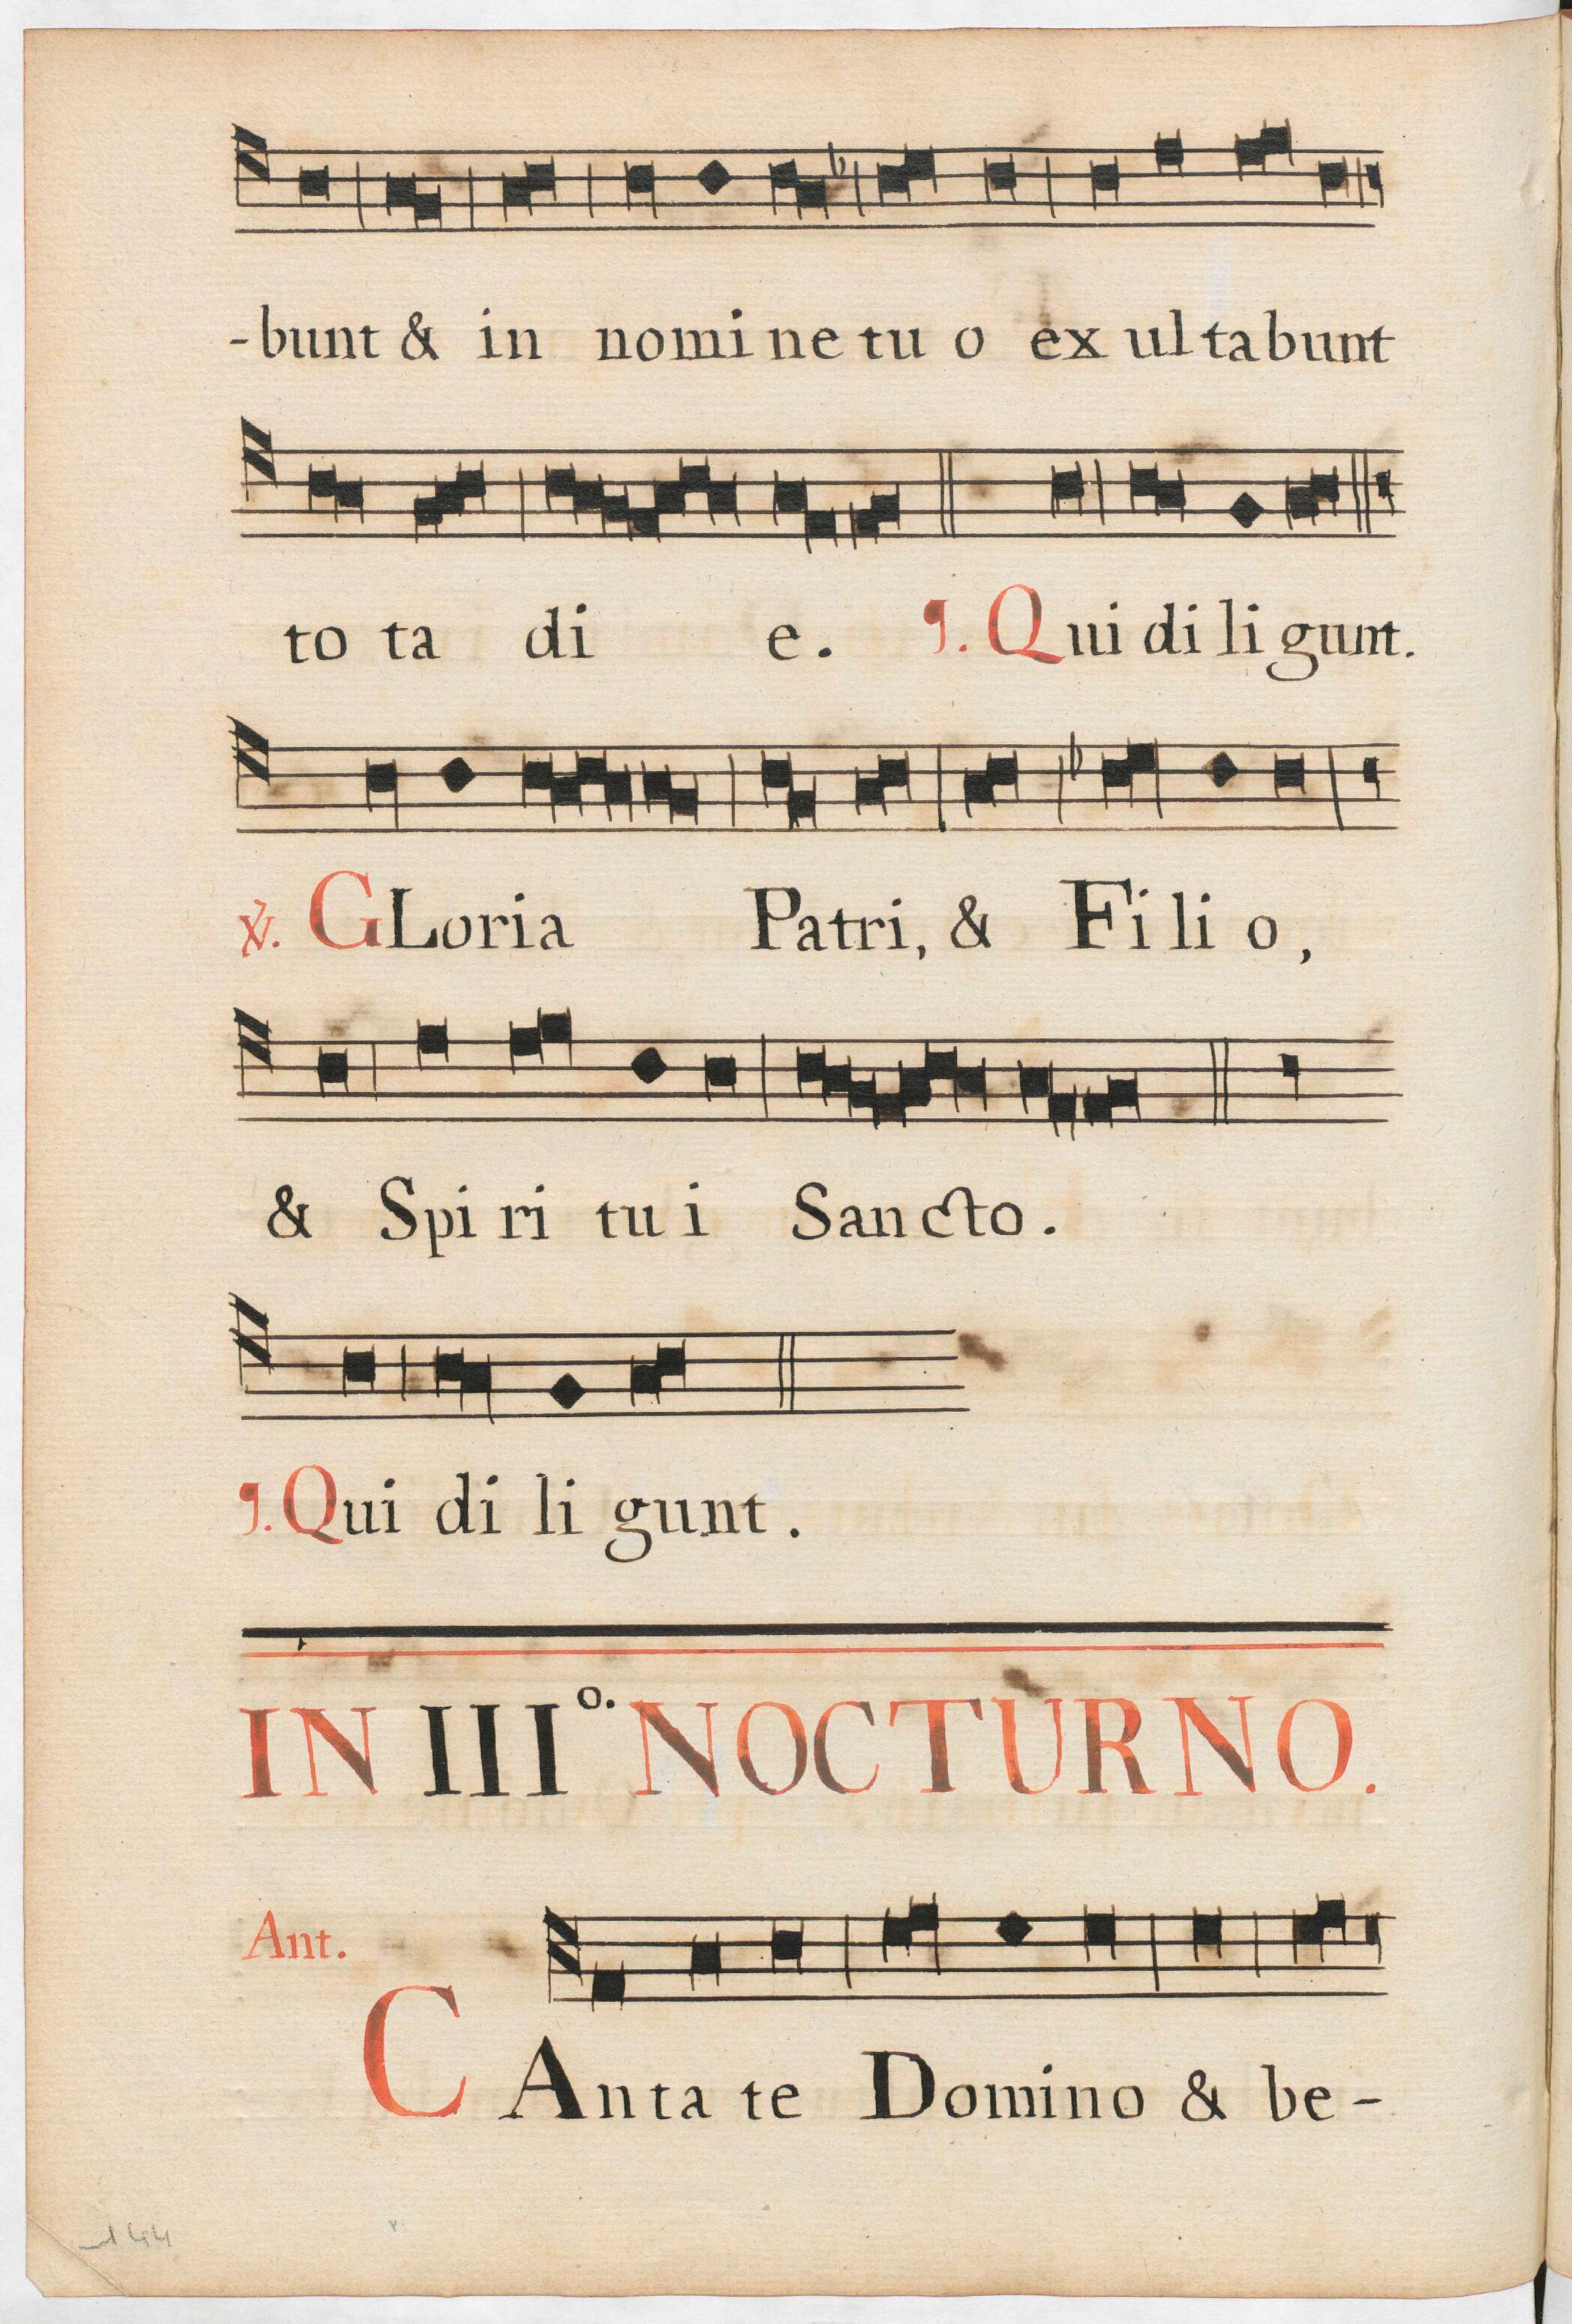 -bunt & in nomine tuo exultabunt
tota die. ¶. Qui diligunt.
℣. GLoria Patri, & Filio,
& Spiritui Sancto.
¶. Qui diligunt.
IN IIIº. NOCTURNO.
Ant.
CAntate Domino & be-
144